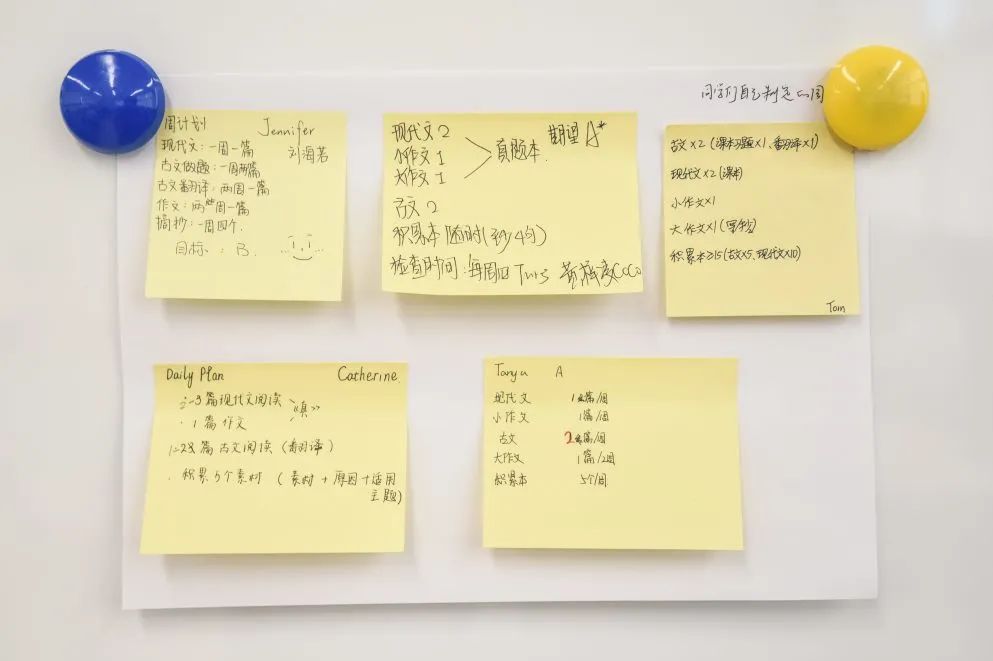 同学们自己制定的周
周计划 Jennifer
现代文：一周一篇 刘海若
古文做题：一周两篇
古文翻译：两周一篇
作文：两周一篇
摘抄：一周四个.
目标：B.
现代文 2 期望 A*
小作文 1 真题本.
大作文 1
古文 2
积累本 随时(至少4句)
检查时间：每周四 Coco
古文×2(课本习题×1、翻译×1)
现代文×2(课本)
小作文×1
大作文×1(写作)
积累本≥15(古文×5、现代文×10)
Tom
Daily Plan Catherine.
2-3篇现代文阅读 《真》
· 1篇作文
1-2篇古文阅读 (翻译)
· 积累5个素材 (素材+原因+适用
主题)
Tanya A
现代文 1篇/周
小作文 1篇/周
古文 2篇/周
大作文 1篇/2周
积累本 5个/周